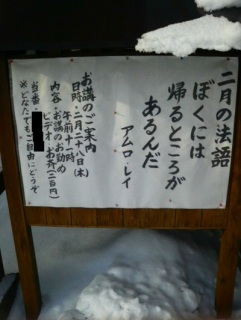 二月の法語
ぼくには
帰るところが
あるんだ
アムロ・レイ
お講のご案内
日時・二月二十八日(木)
午前十時
内容・お講のお勤め
ビデオ・お斉(二百円)
当番・
※どなたでもご自由にどうぞ